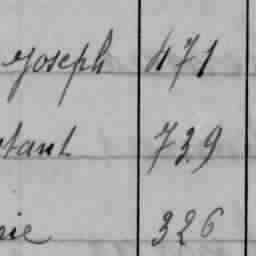 Joseph 471
stant 739
rie 326